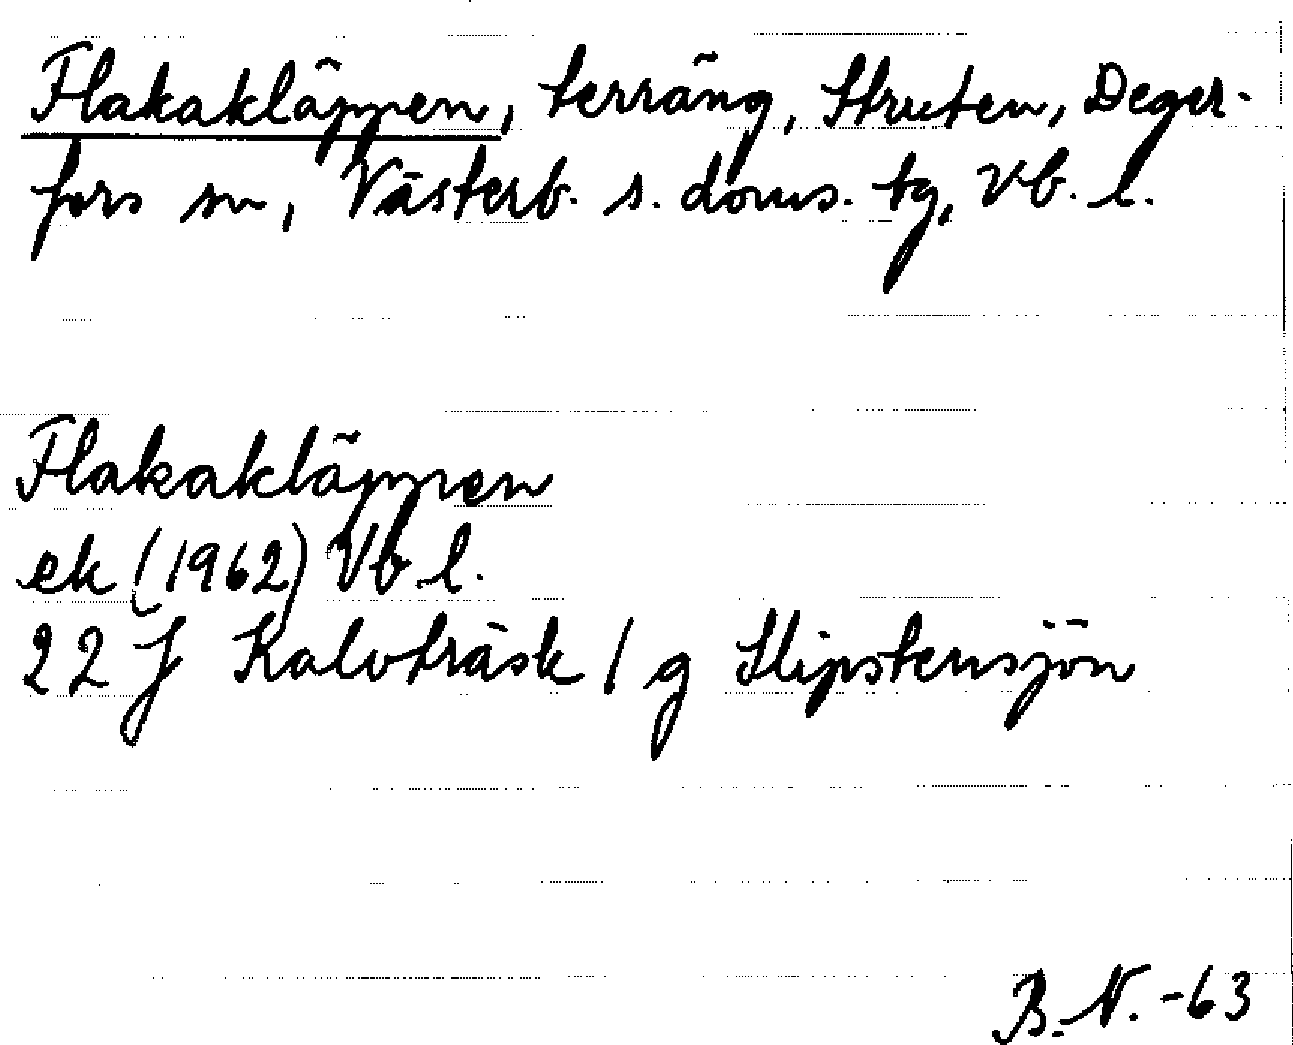 Flakakläppen, terräng, Struten, Deger-
fors sn, Västerb. s. doms. tg, Vb. l.
Flakakläppen
ek (1962) Vb l.
22 J Kalvträsk / g Slipstensjön
B. N. -63